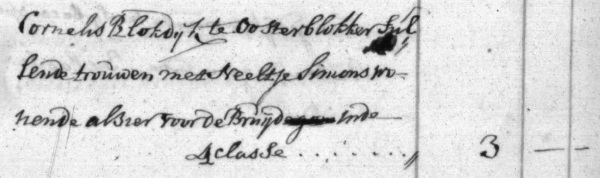 Cornelis Blokdijk te Oosterblokker Sul
lende trouwen met Neeltje Simons wo-
nende alhier voor de Bruijd inde
4 classe ........ „ 3 — —